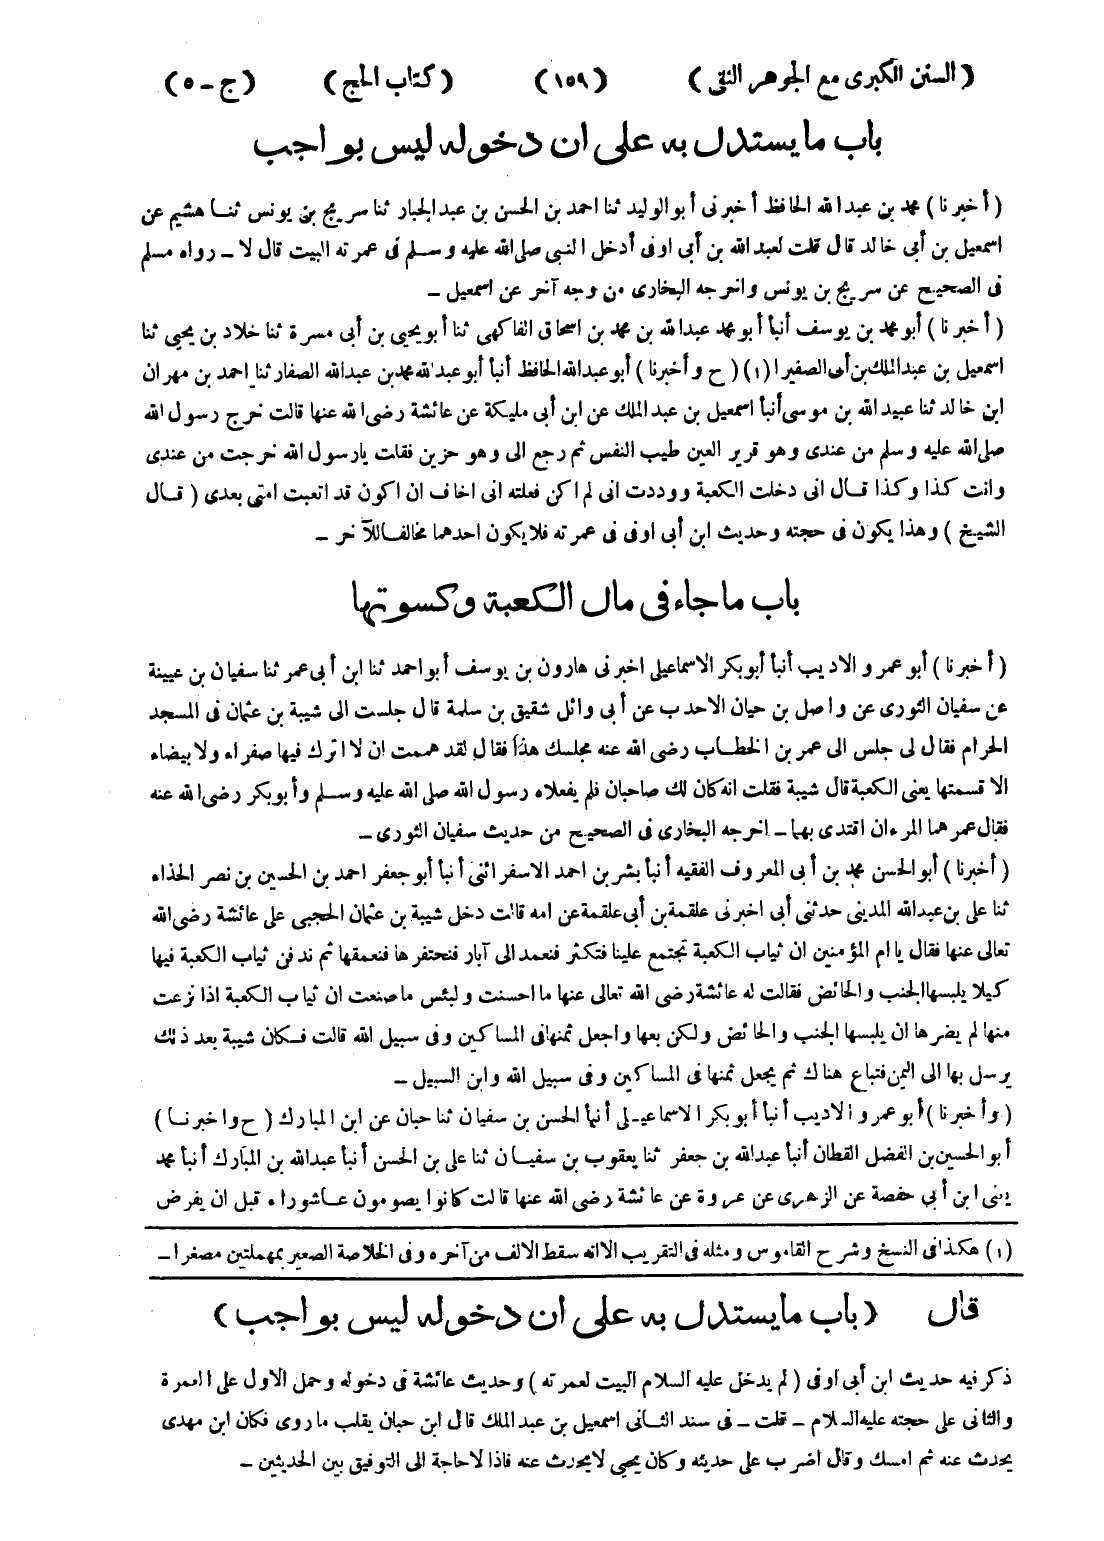 ( السنن الكبرى مع الجوهر النقى ) (١٥٩) ( كتاب الحج ) ( ج ـ ٥ )
باب ما يستدل به على ان دخوله ليس بواجب
( أخبرنا ) محمد بن عبد الله الحافظ أخبرنى أبو الوليد ثنا احمد بن الحسن بن عبد الجبار ثنا سريج بن يونس ثنا هشيم عن
اسمعيل بن أبى خالد قال قلت لعبد الله بن أبى اوفى أدخل النبى صلى الله عليه وسلم فى عمرته البيت قال لا ـ رواه مسلم
فى الصحيح عن سريج بن يونس واخرجه البخارى من وجه آخر عن اسمعيل ـ
( أخبرنا ) أبو محمد بن يوسف أنبأ أبو محمد عبد الله بن محمد بن اسحاق الفاكهى ثنا أبو يحيى بن أبى مسرة ثنا خلاد بن يحيى ثنا
اسمعيل بن عبد الملك بن أبى الصفيرا (١) ( ح وأخبرنا ) أبو عبد الله الحافظ أنبأ أبو عبد الله محمد بن عبد الله الصفار ثنا احمد بن مهران
ابن خالد ثنا عبيد الله بن موسى أنبأ اسمعيل بن عبد الملك عن ابن أبى مليكة عن عائشة رضى الله عنها قالت خرج رسول الله
صلى الله عليه وسلم من عندى وهو قرير العين طيب النفس ثم رجع الى وهو حزين فقلت يا رسول الله خرجت من عندى
وانت كذا وكذا قال انى دخلت الكعبة ووددت انى لم اكن فعلته انى اخاف ان اكون قد اتعبت امتى بعدى ( قال
الشيخ ) وهذا يكون فى حجته وحديث ابن أبى اوفى فى عمرته فلا يكون احدهما مخالفا للآخر ـ
باب ما جاء فى مال الكعبة وكسوتها
( أخبرنا ) أبو عمرو الاديب أنبأ أبو بكر الاسماعيلى اخبرنى هارون بن يوسف أبو احمد ثنا ابن أبى عمر ثنا سفيان بن عيينة
عن سفيان الثورى عن واصل بن حيان الاحدب عن أبى وائل شقيق بن سلمة قال جلست الى شيبة بن عثمان فى المسجد
الحرام فقال لى جلس الى عمر بن الخطاب رضى الله عنه مجلسك هذا فقال لقد هممت ان لا اترك فيها صفراء ولا بيضاء
الا قسمتها يعنى الكعبة قال شيبة فقلت انه كان لك صاحبان فلم يفعلاه رسول الله صلى الله عليه وسلم وأبو بكر رضى الله عنه
فقال عمر هما المرءان اقتدى بهما ـ اخرجه البخارى فى الصحيح من حديث سفيان الثورى ـ
( أخبرنا ) أبو الحسن محمد بن أبى المعروف الفقيه أنبأ بشر بن احمد الاسفرائنى أنبأ أبو جعفر احمد بن الحسين بن نصر الحذاء
ثنا على بن عبد الله المدينى حدثنى أبى اخبرنى علقمة بن أبى علقمة عن امه قالت دخل شيبة بن عثمان الحجبى على عائشة رضى الله
تعالى عنها فقال يا ام المؤمنين ان ثياب الكعبة تجتمع علينا فتكثر فنعمد الى آبار فنحتفرها فنعمقها ثم ندفن ثياب الكعبة فيها
كيلا يلبسها الجنب والحائض فقالت له عائشة رضى الله تعالى عنها ما احسنت ولبئس ما صنعت ان ثياب الكعبة اذا نزعت
منها لم يضرها ان يلبسها الجنب والحائض ولكن بعها واجعل ثمنها فى المساكين وفى سبيل الله قالت فكان شيبة بعد ذلك
يرسل بها الى اليمن فتباع هناك ثم يجعل ثمنها فى المساكين وفى سبيل الله وابن السبيل ـ
( وأخبرنا ) أبو عمرو الاديب أنبأ أبو بكر الاسماعيلى أنبأ الحسن بن سفيان ثنا حبان عن ابن المبارك ( ح واخبرنا )
أبو الحسين بن الفضل القطان أنبأ عبد الله بن جعفر ثنا يعقوب بن سفيان ثنا على بن الحسن أنبأ عبد الله بن المبارك أنبأ محمد
يعنى ابن أبى حفصة عن الزهرى عن عروة عن عائشة رضى الله عنها قالت كانوا يصومون عاشوراء قبل ان يفرض
(١) هكذا فى النسخ وشرح القاموس ومثله فى التقريب الا انه سقط الالف من آخره وفى الخلاصة الصعير بمهملتين مصغرا ـ
قال ( باب ما يستدل به على ان دخوله ليس بواجب )
ذكر فيه حديث ابن أبى اوفى ( لم يدخل عليه السلام البيت لعمرته ) وحديث عائشة فى دخوله وحمل الاول على العمرة
والثانى على حجته عليه السلام ـ قلت ـ فى سند الثانى اسمعيل بن عبد الملك قال ابن حبان يقلب ما روى فكان ابن مهدى
يحدث عنه ثم امسك وقال اضرب على حديثه وكان يحيى لا يحدث عنه فاذا لا حاجة الى التوفيق بين الحديثين ـ